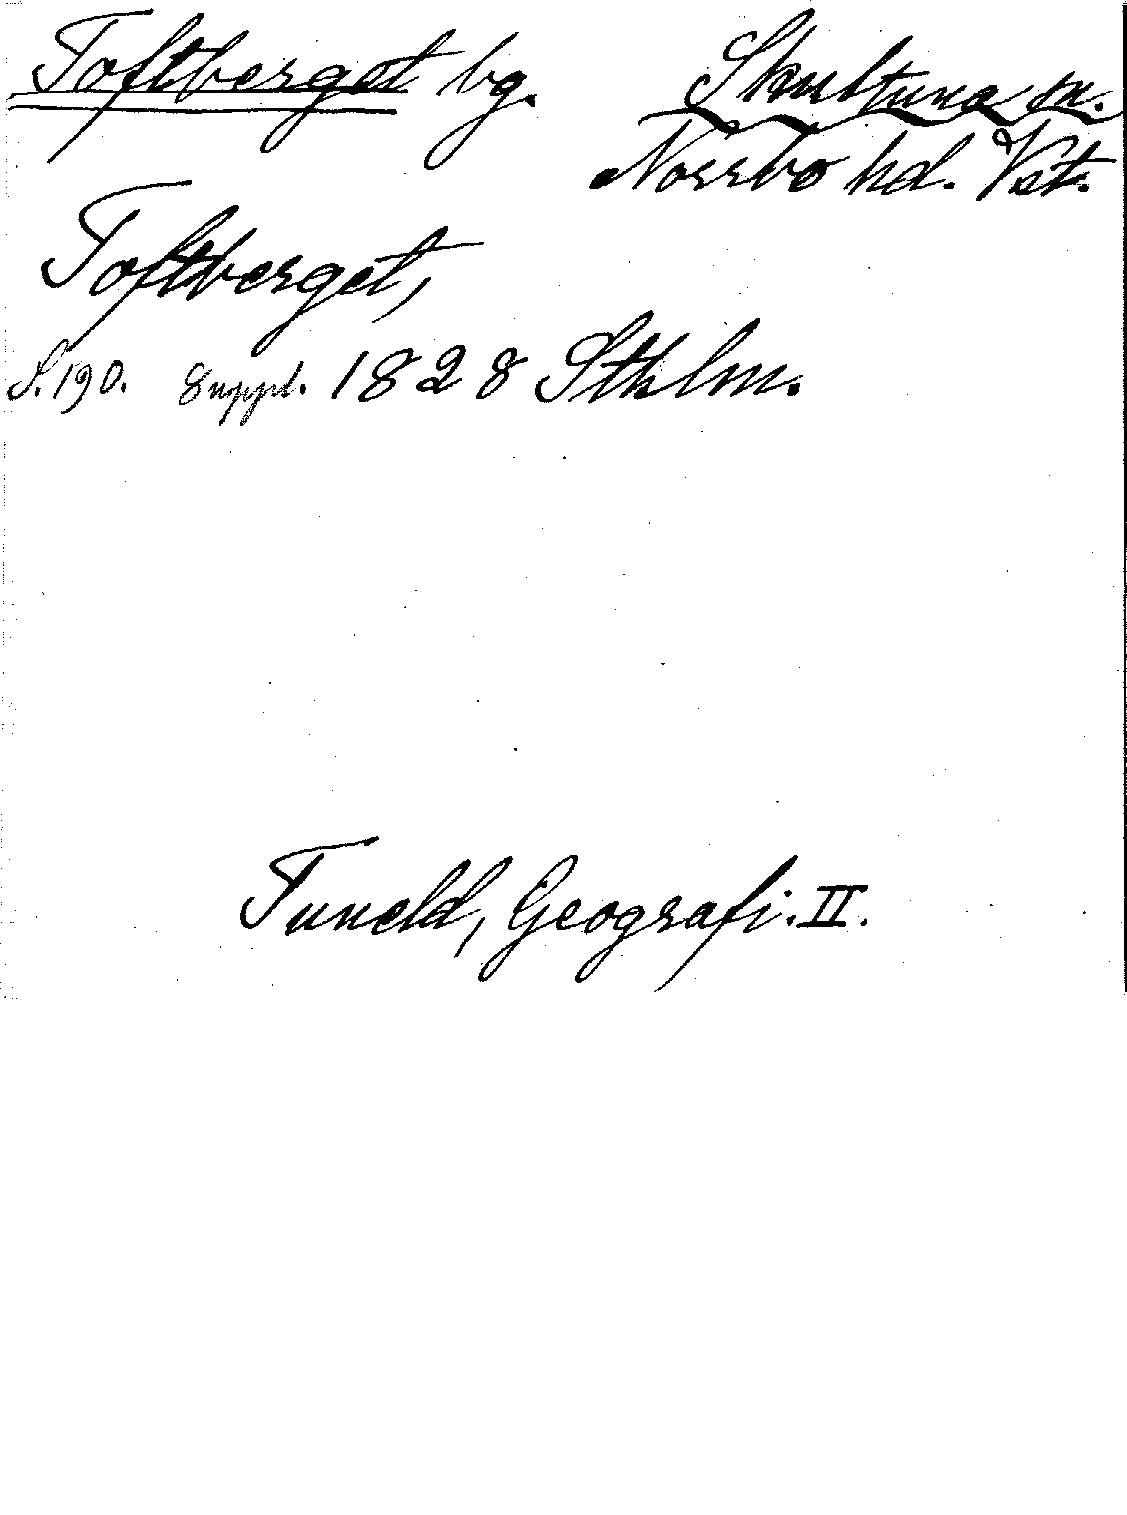 Toftberget bg. Skultuna sn.
Norrbo hd. Vst.
Toftberget,
S. 190. Suppl. 1828 Sthlm.
Tuneld, Geografi. II.